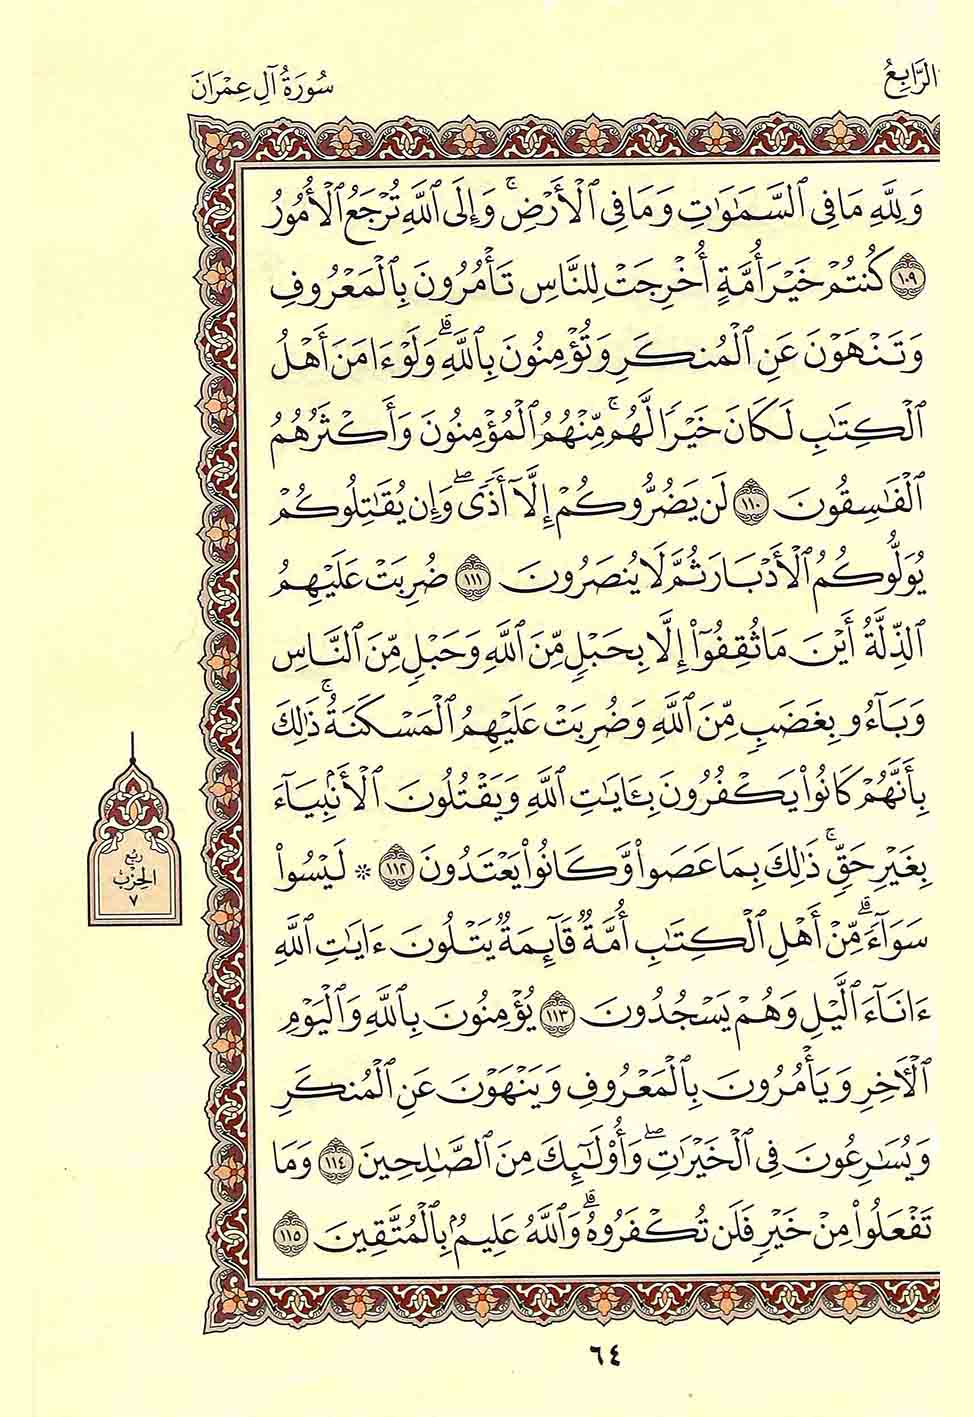 الرَّابِعُ
سُورَةُ آلِ عِمْرَانَ
وَلِلَّهِ مَا فِي ٱلسَّمَٰوَٰتِ وَمَا فِي ٱلْأَرْضِۚ وَإِلَى ٱللَّهِ تُرْجَعُ ٱلْأُمُورُ
١٠٩ كُنتُمْ خَيْرَ أُمَّةٍ أُخْرِجَتْ لِلنَّاسِ تَأْمُرُونَ بِٱلْمَعْرُوفِ
وَتَنْهَوْنَ عَنِ ٱلْمُنكَرِ وَتُؤْمِنُونَ بِٱللَّهِۗ وَلَوْ ءَامَنَ أَهْلُ
ٱلْكِتَٰبِ لَكَانَ خَيْرًا لَّهُمۚ مِّنْهُمُ ٱلْمُؤْمِنُونَ وَأَكْثَرُهُمُ
ٱلْفَٰسِقُونَ ١١٠ لَن يَضُرُّوكُمْ إِلَّآ أَذًىۖ وَإِن يُقَٰتِلُوكُمْ
يُوَلُّوكُمُ ٱلْأَدْبَارَ ثُمَّ لَا يُنصَرُونَ ١١١ ضُرِبَتْ عَلَيْهِمُ
ٱلذِّلَّةُ أَيْنَ مَا ثُقِفُوٓا۟ إِلَّا بِحَبْلٍ مِّنَ ٱللَّهِ وَحَبْلٍ مِّنَ ٱلنَّاسِ
وَبَآءُو بِغَضَبٍ مِّنَ ٱللَّهِ وَضُرِبَتْ عَلَيْهِمُ ٱلْمَسْكَنَةُۚ ذَٰلِكَ
بِأَنَّهُمْ كَانُوا۟ يَكْفُرُونَ بِـَٔايَٰتِ ٱللَّهِ وَيَقْتُلُونَ ٱلْأَنۢبِيَآءَ
بِغَيْرِ حَقٍّۚ ذَٰلِكَ بِمَا عَصَوا۟ وَّكَانُوا۟ يَعْتَدُونَ ١١٢ ۞ لَيْسُوا۟
سَوَآءًۗ مِّنْ أَهْلِ ٱلْكِتَٰبِ أُمَّةٌ قَآئِمَةٌ يَتْلُونَ ءَايَٰتِ ٱللَّهِ
ءَانَآءَ ٱلَّيْلِ وَهُمْ يَسْجُدُونَ ١١٣ يُؤْمِنُونَ بِٱللَّهِ وَٱلْيَوْمِ
ٱلْءَاخِرِ وَيَأْمُرُونَ بِٱلْمَعْرُوفِ وَيَنْهَوْنَ عَنِ ٱلْمُنكَرِ
وَيُسَٰرِعُونَ فِي ٱلْخَيْرَٰتِۖ وَأُو۟لَٰٓئِكَ مِنَ ٱلصَّٰلِحِينَ ١١٤ وَمَا
تَفْعَلُوا۟ مِنْ خَيْرٍ فَلَن تُكْفَرُوهُۗ وَٱللَّهُ عَلِيمٌۢ بِٱلْمُتَّقِينَ ١١٥
رُبْعُ
الحِزْبِ
٧
٦٤